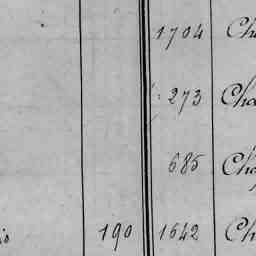 1704 Cha
273 Cha
685 Cha
is 190 1642 Ch